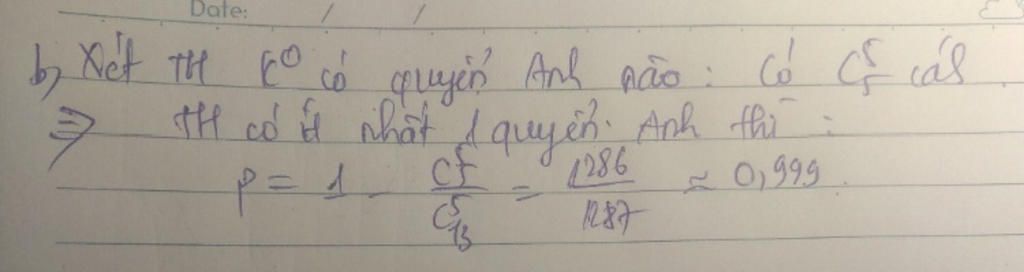 Date: / /
b, Xét TH K⁰ có quyển Anh nào : Có C₅⁵ cách
=> TH có ít nhất 1 quyển Anh thì :
P = 1 - C₅⁵/C₁₃⁵ = 1286/1287 ≈ 0,999.